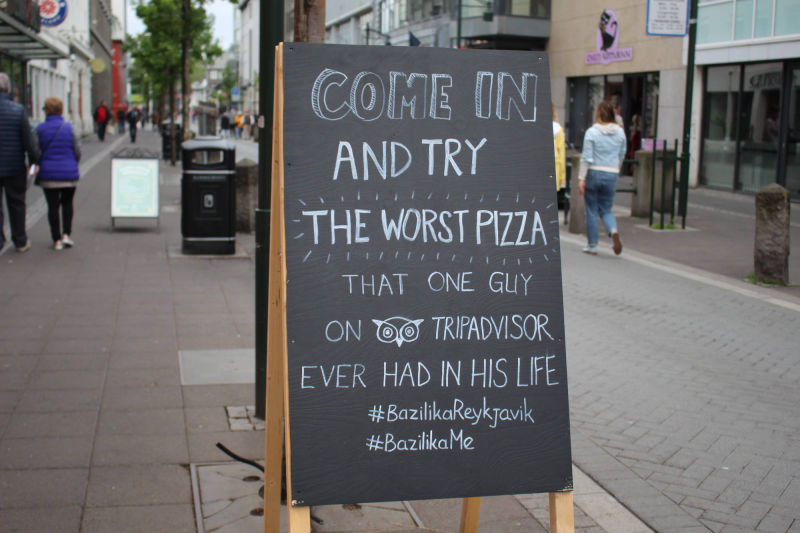 COME IN
AND TRY
THE WORST PIZZA
THAT ONE GUY
ON TRIPADVISOR
EVER HAD IN HIS LIFE
#BazilikaReykjavik
#BazilikaMe